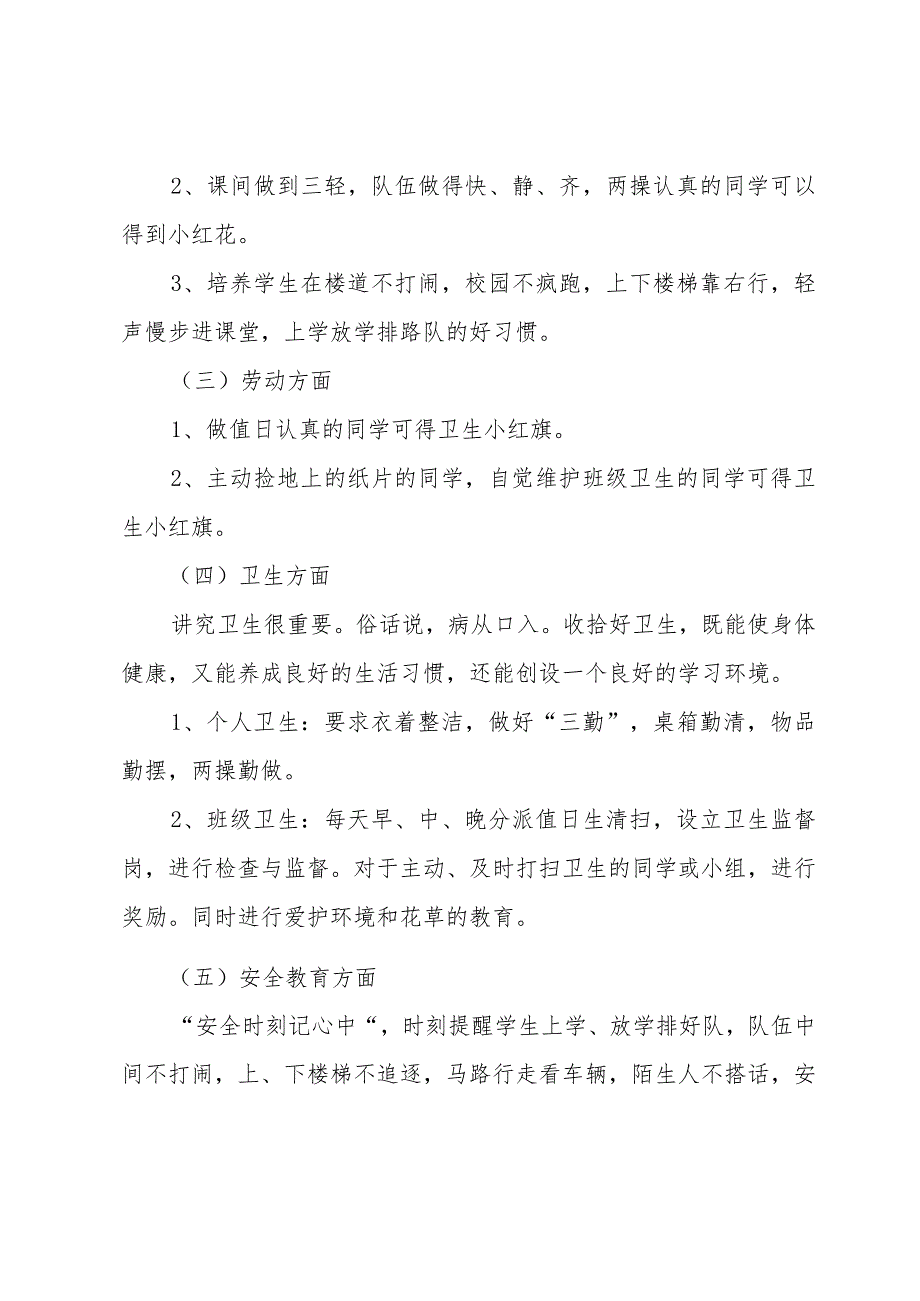 2、课间做到三轻，队伍做得快、静、齐，两操认真的同学可以
得到小红花。
3、培养学生在楼道不打闹，校园不疯跑，上下楼梯靠右行，轻
声慢步进课堂，上学放学排路队的好习惯。
（三）劳动方面
1、做值日认真的同学可得卫生小红旗。
2、主动捡地上的纸片的同学，自觉维护班级卫生的同学可得卫
生小红旗。
（四）卫生方面
讲究卫生很重要。俗话说，病从口入。收拾好卫生，既能使身体
健康，又能养成良好的生活习惯，还能创设一个良好的学习环境。
1、个人卫生：要求衣着整洁，做好“三勤”，桌箱勤清，物品
勤摆，两操勤做。
2、班级卫生：每天早、中、晚分派值日生清扫，设立卫生监督
岗，进行检查与监督。对于主动、及时打扫卫生的同学或小组，进行
奖励。同时进行爱护环境和花草的教育。
（五）安全教育方面
“安全时刻记心中“，时刻提醒学生上学、放学排好队，队伍中
间不打闹，上、下楼梯不追逐，马路行走看车辆，陌生人不搭话，安